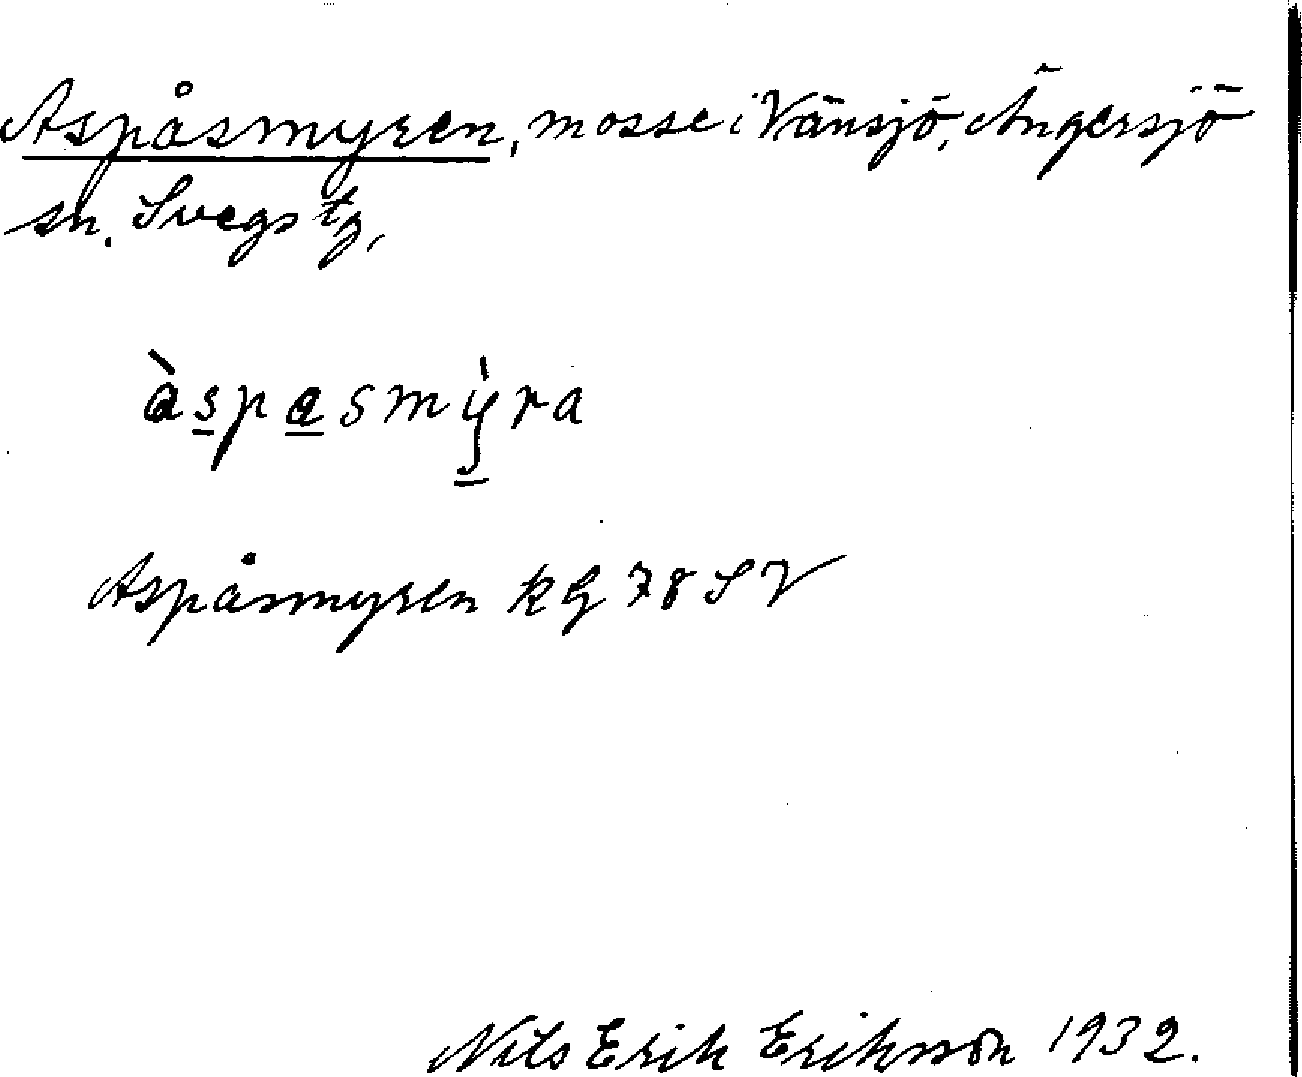 Aspåsmyren, mosse i Vänsjö, Ängersjö
sn. Svegs tg,
àspasmy̍ra
Aspåsmyren kG 78 SV
Nils Erik Eriksson 1932.